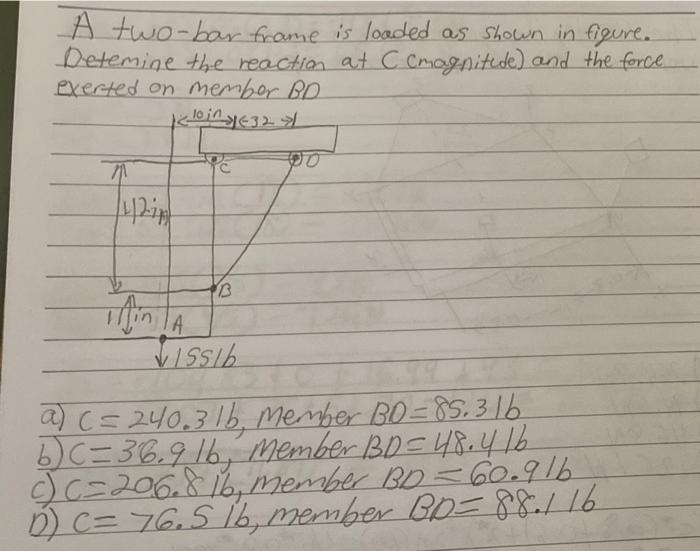 A two-bar frame is loaded as shown in figure.
Detemine the reaction at C (magnitude) and the force
exerted on member BD
10in 32
C D
42in
B
11in A
155lb
a) C = 240.3 lb, Member BD = 85.3 lb
b) C = 36.9 lb, Member BD = 48.4 lb
c) C = 206.8 lb, member BD = 60.9 lb
D) C = 76.5 lb, member BD = 88.1 lb